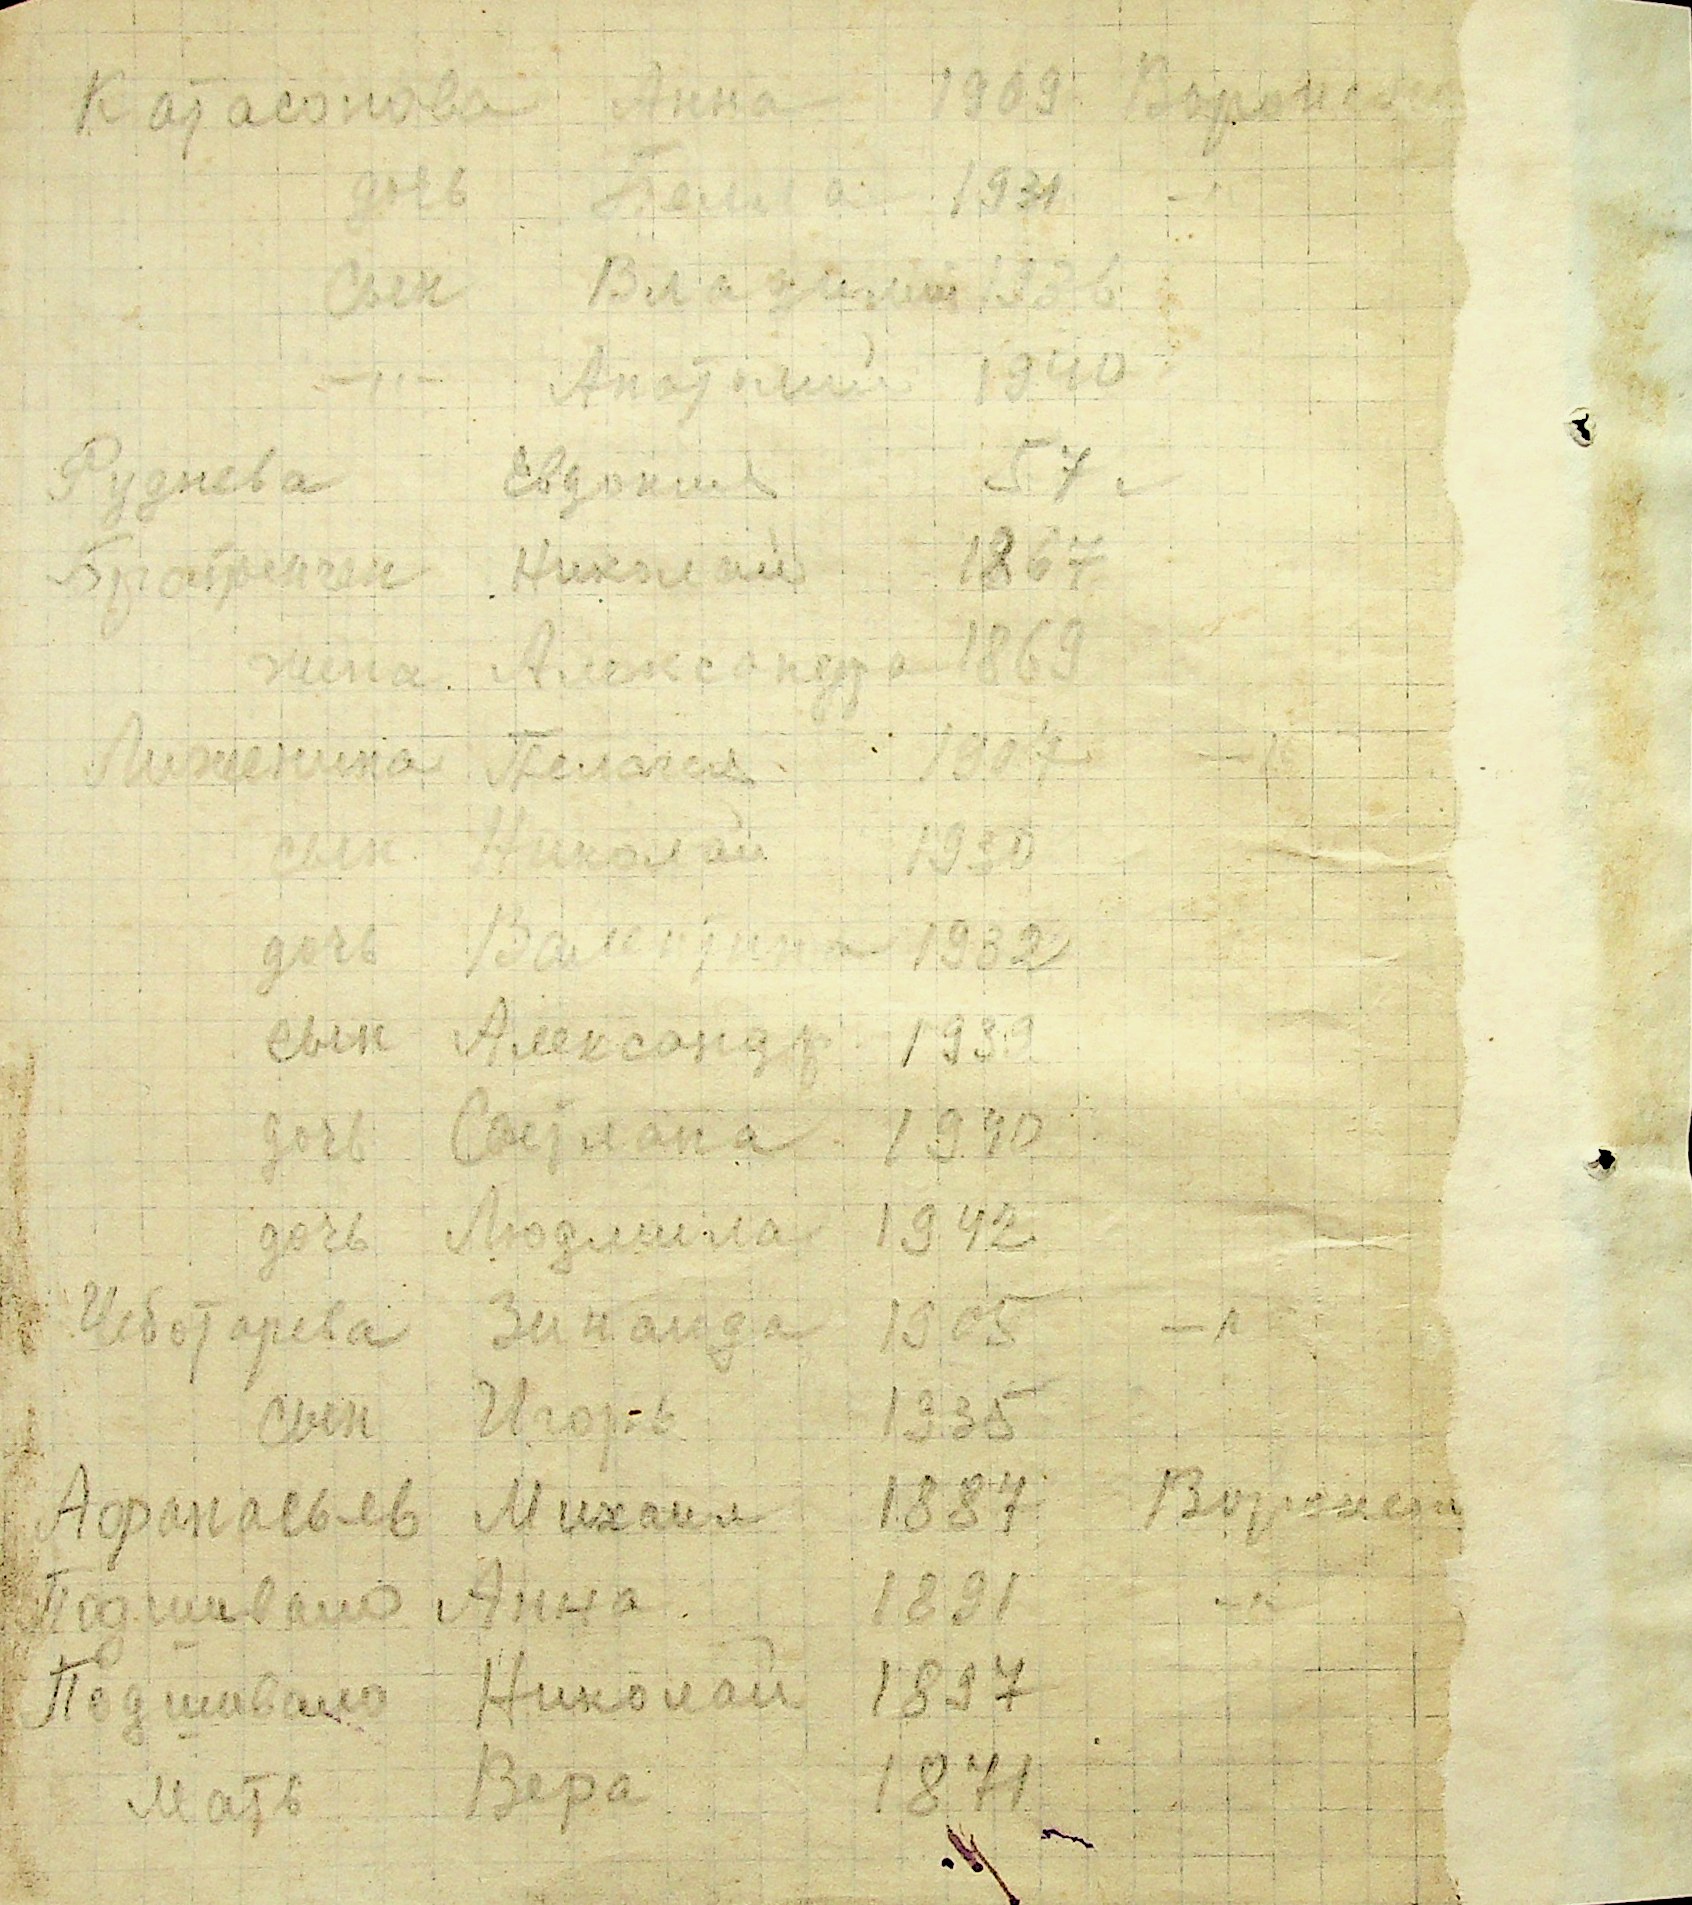 Катасонова Анна 1909 Воронеж
дочь Белла 1931 -"
Сын Владимир 1936
-"- Анатолий 1940
Руднева Евдокия 57 л
Николай 1867
жена Александра 1869
Пелагея 1907 -"
сын Николай 1930
дочь Валентина 1932
сын Александр 1939
дочь Светлана 1940
дочь Людмила 1942
Чеботарева Зинаида 1905 -"
сын Игорь 1935
Афанасьев Михаил 1887 Воронеж
Подшивало Анна 1891 -"-
Подшивало Николай 1897
Мать Вера 1871